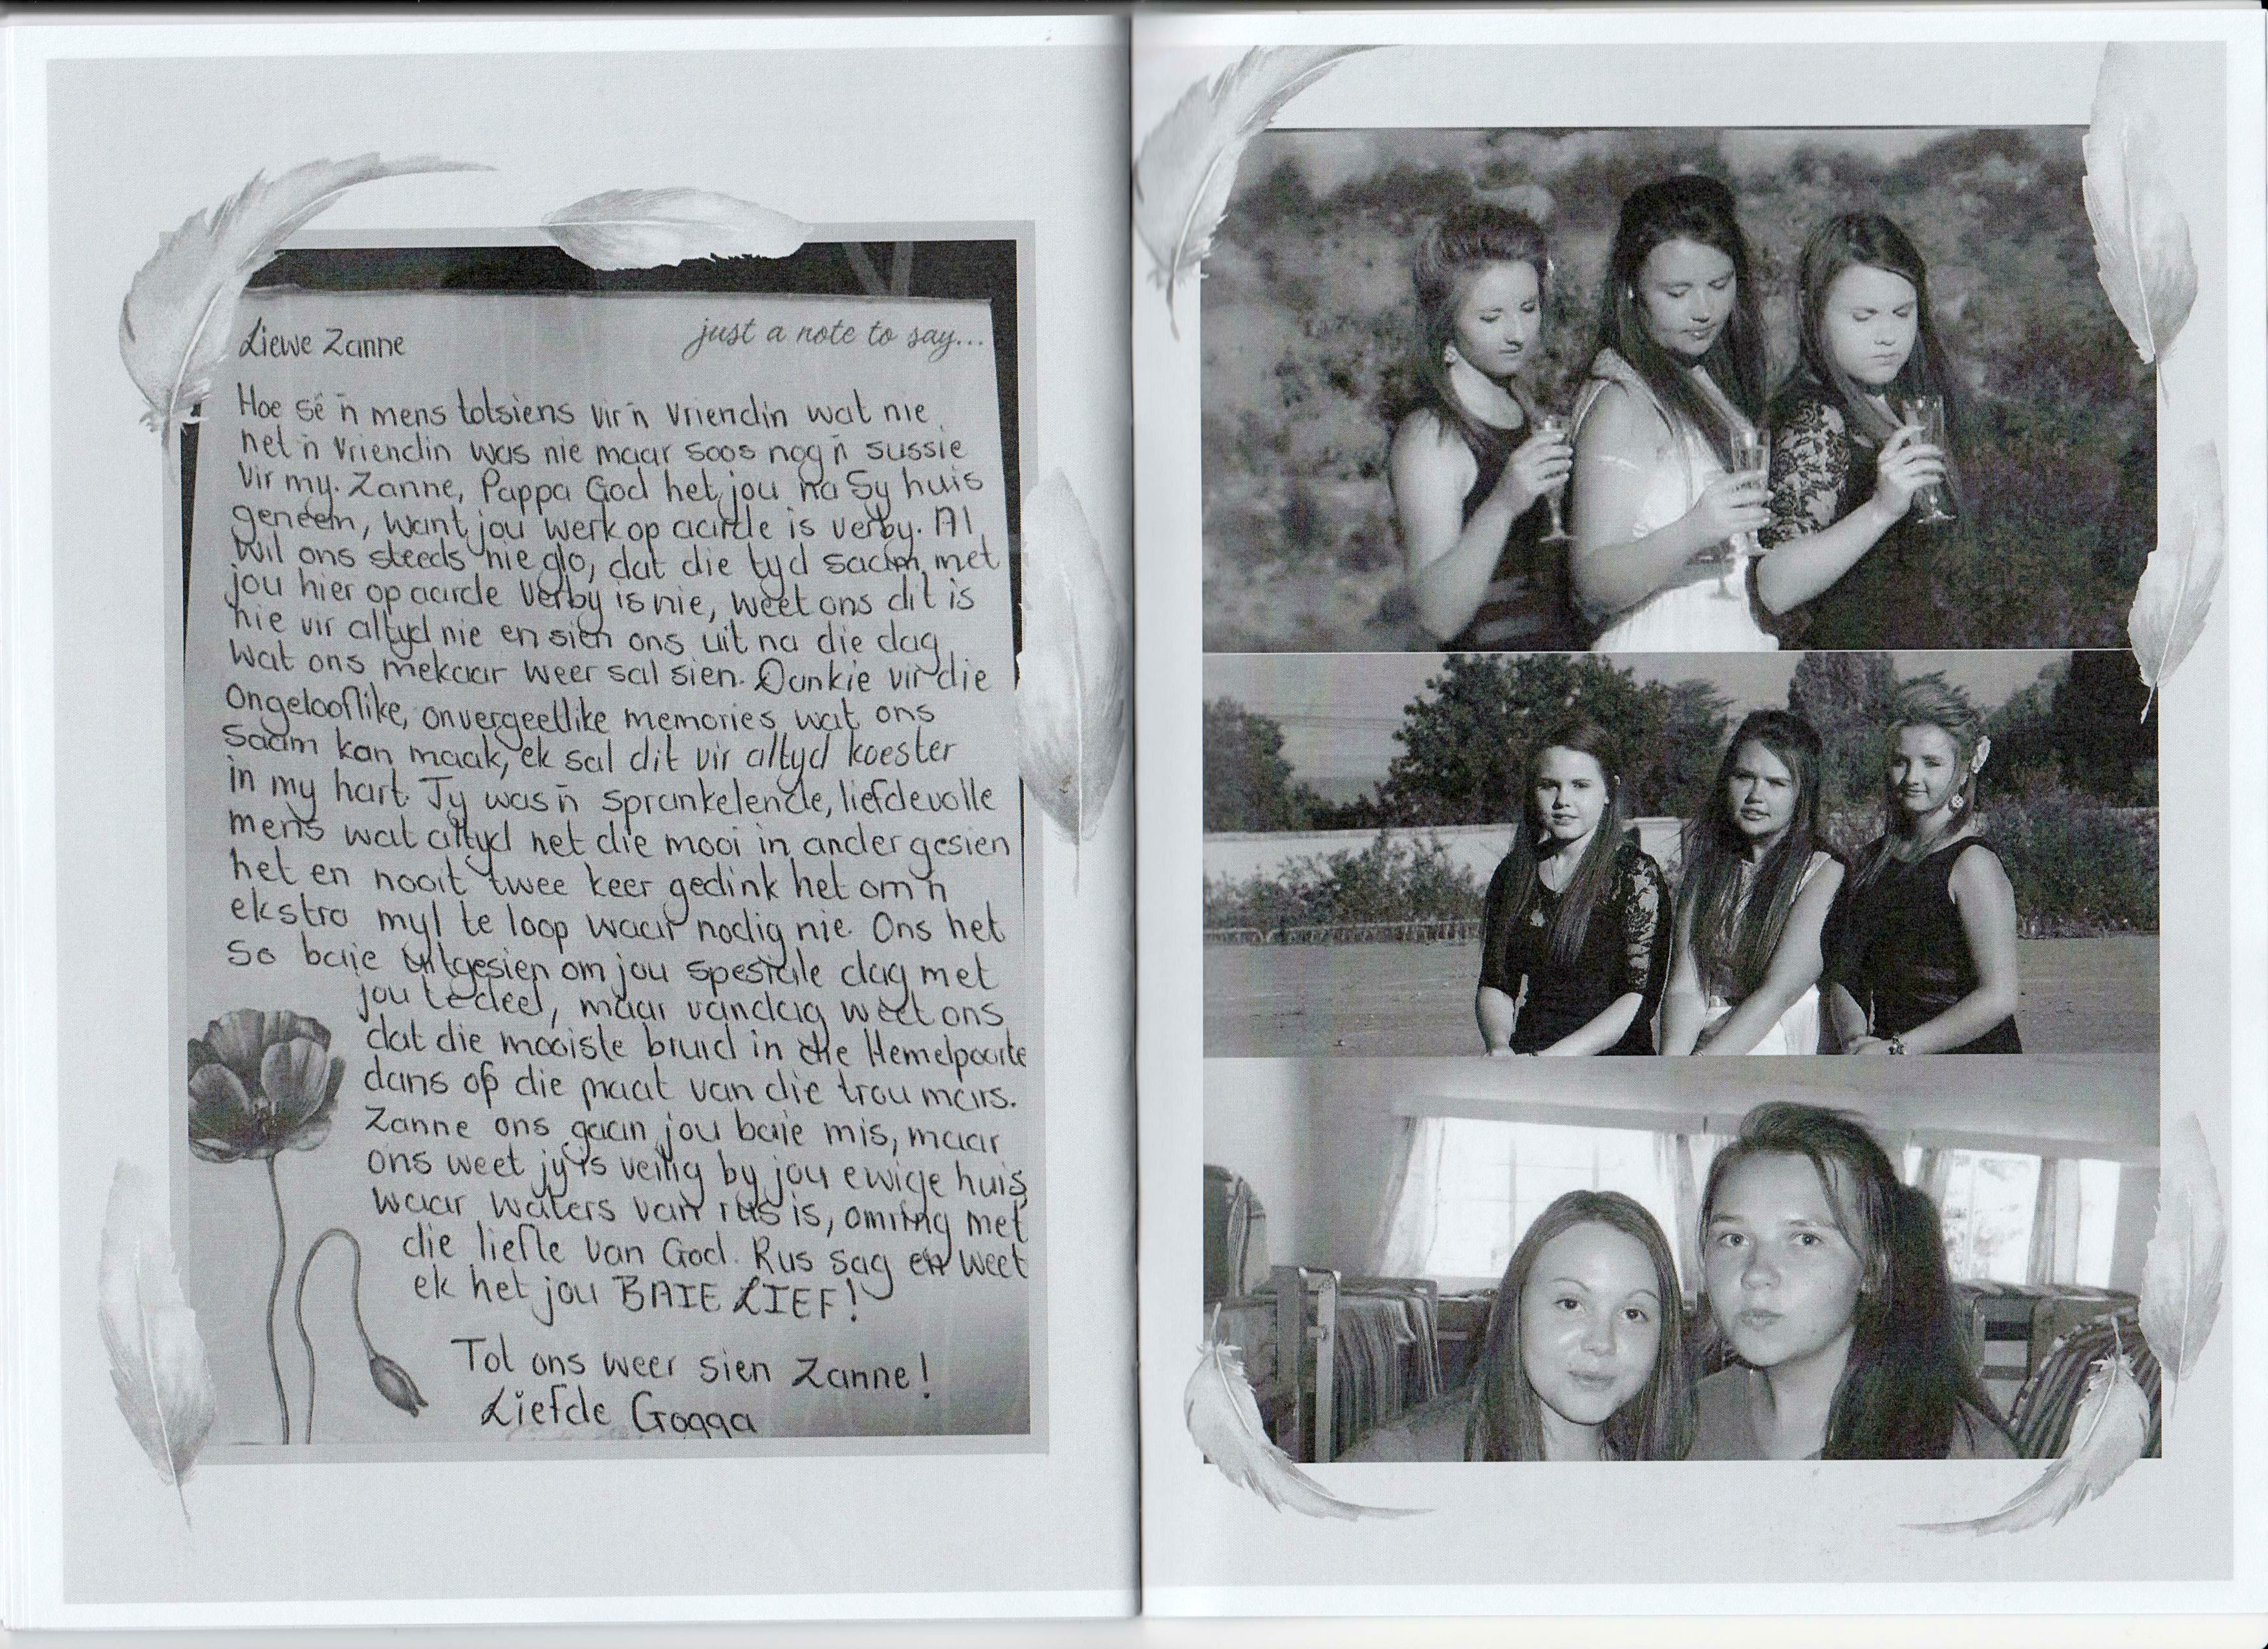 Liewe Zanne
just a note to say...
Hoe sê 'n mens totsiens vir 'n vriendin wat nie
net 'n vriendin was nie maar soos nog 'n sussie
vir my. Zanne, Pappa God het jou na Sy huis
geneem, want jou werk op aarde is verby. Al
wil ons steeds nie glo, dat die tyd saam met
jou hier op aarde verby is nie, weet ons dit is
nie vir altyd nie en sien ons uit na die dag
wat ons mekaar weer sal sien. Dankie vir die
Ongelooflike, onvergeetlike memories wat ons
saam kon maak, ek sal dit vir altyd koester
in my hart. Jy was 'n sprankelende, liefdevolle
mens wat altyd net die mooi in ander gesien
het en nooit twee keer gedink het om 'n
ekstra myl te loop waar nodig nie. Ons het
so baie uitgesien om jou spesiale dag met
jou te deel, maar vandag weet ons
dat die mooiste bruid in die Hemelpoorte
dans op die maat van die trou mars.
Zanne ons gaan jou baie mis, maar
ons weet jy is veilig by jou ewige huis
waar waters van rus is, omring met
die liefde van God. Rus sag en weet
ek het jou BAIE LIEF!
Tot ons weer sien Zanne!
Liefde Gogga